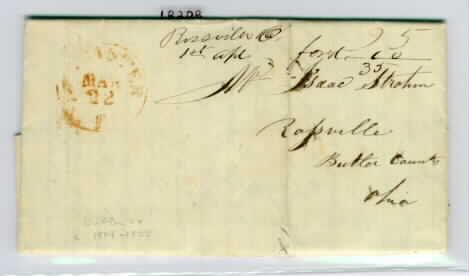 18308
Rossville O
1st apl
ford 25
10
35
MAR
22
Mr Isaac Strohm
Rossville
Butler County
Ohio